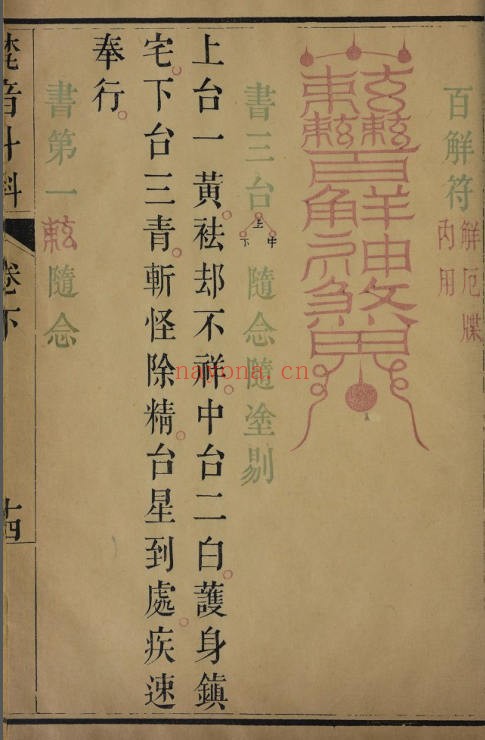 百解符
解厄牒
内用
書三台
上
中
下
隨念隨塗剔
上台一黃。祛却不祥。中台二白。護身鎮
宅。下台三青。斬怪除精。台星到處。疾速
奉行。
書第一
隨念
梵音斗科
卷下
十四
nayona.cn